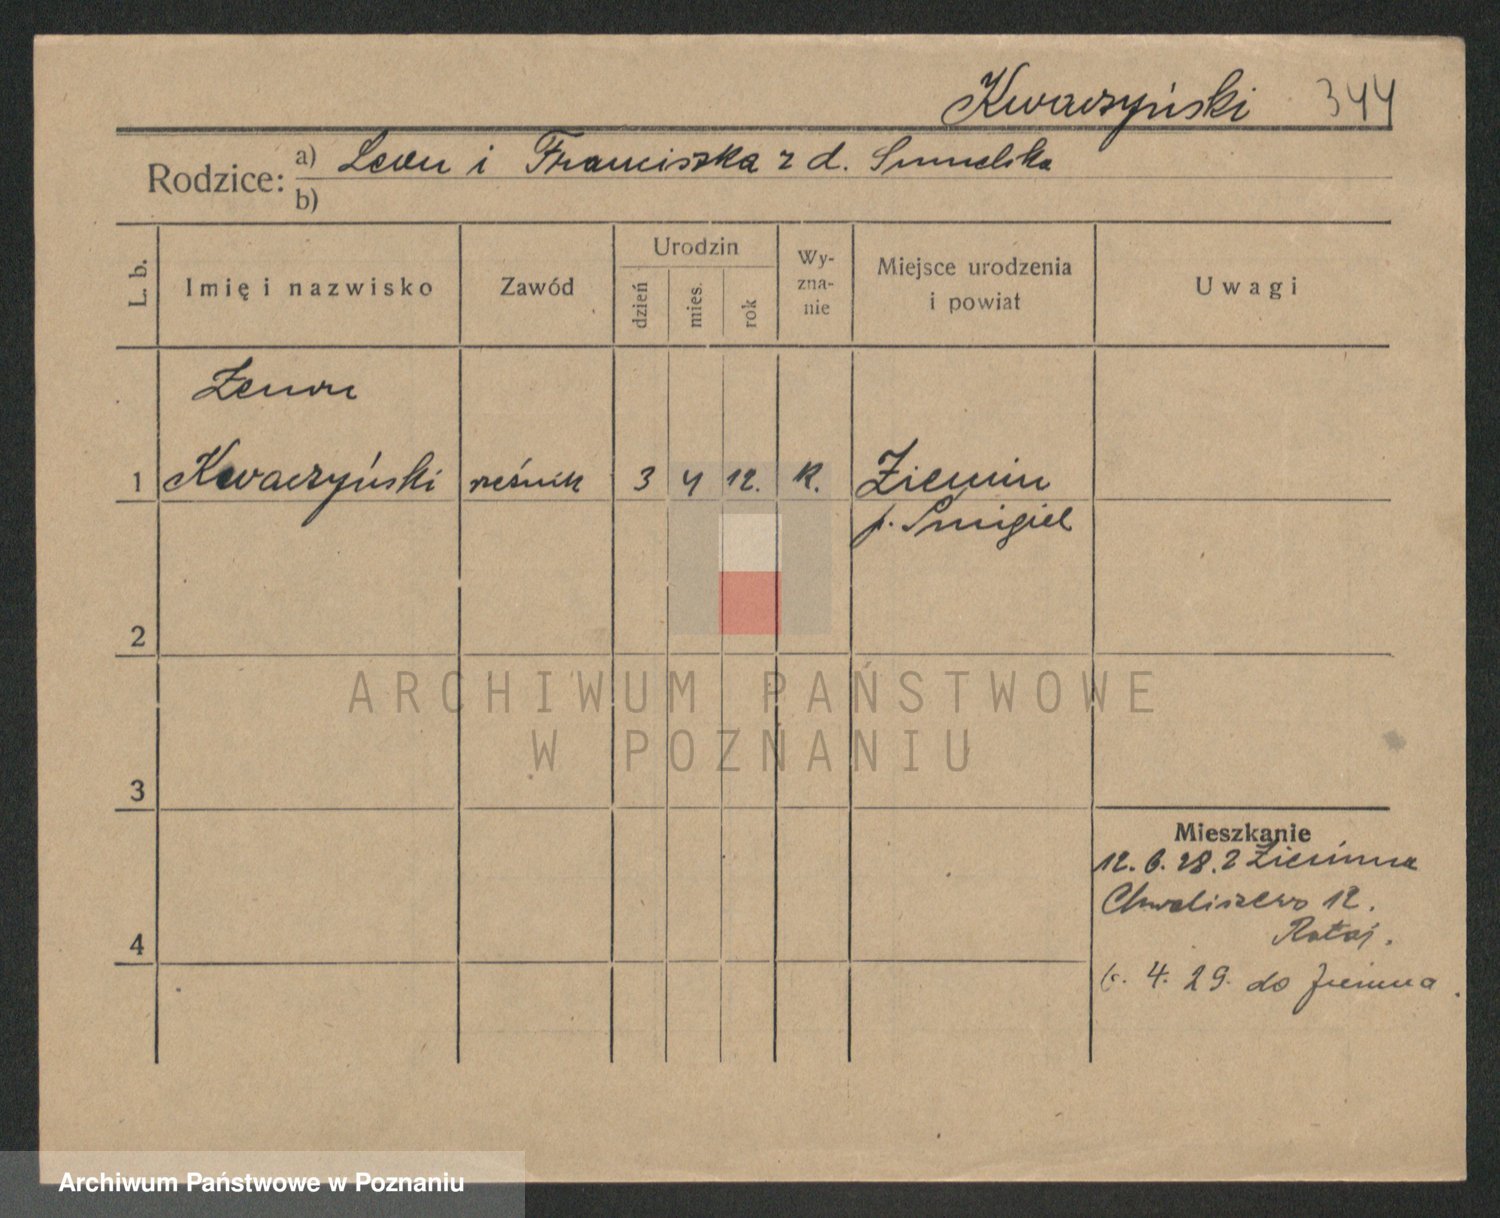 Kwaczyński 344
Rodzice: a) Leon i Franciszka z d. Smmelska
b)
L. b.
Imię i nazwisko
Zawód
Urodzin
dzień
mies.
rok
Wy-
zna-
nie
Miejsce urodzenia
i powiat
Uwagi
Zenon
1 Kwaczyński rzeźnik 3 4 12. K. Ziemin
p. Śmigiel
2
ARCHIWUM PAŃSTWOWE
W POZNANIU
3
Mieszkanie
12. 6. 28. z Ziemina
Chwaliszewo 12.
Rataj.
4
4. 29. do Ziemina.
Archiwum Państwowe w Poznaniu